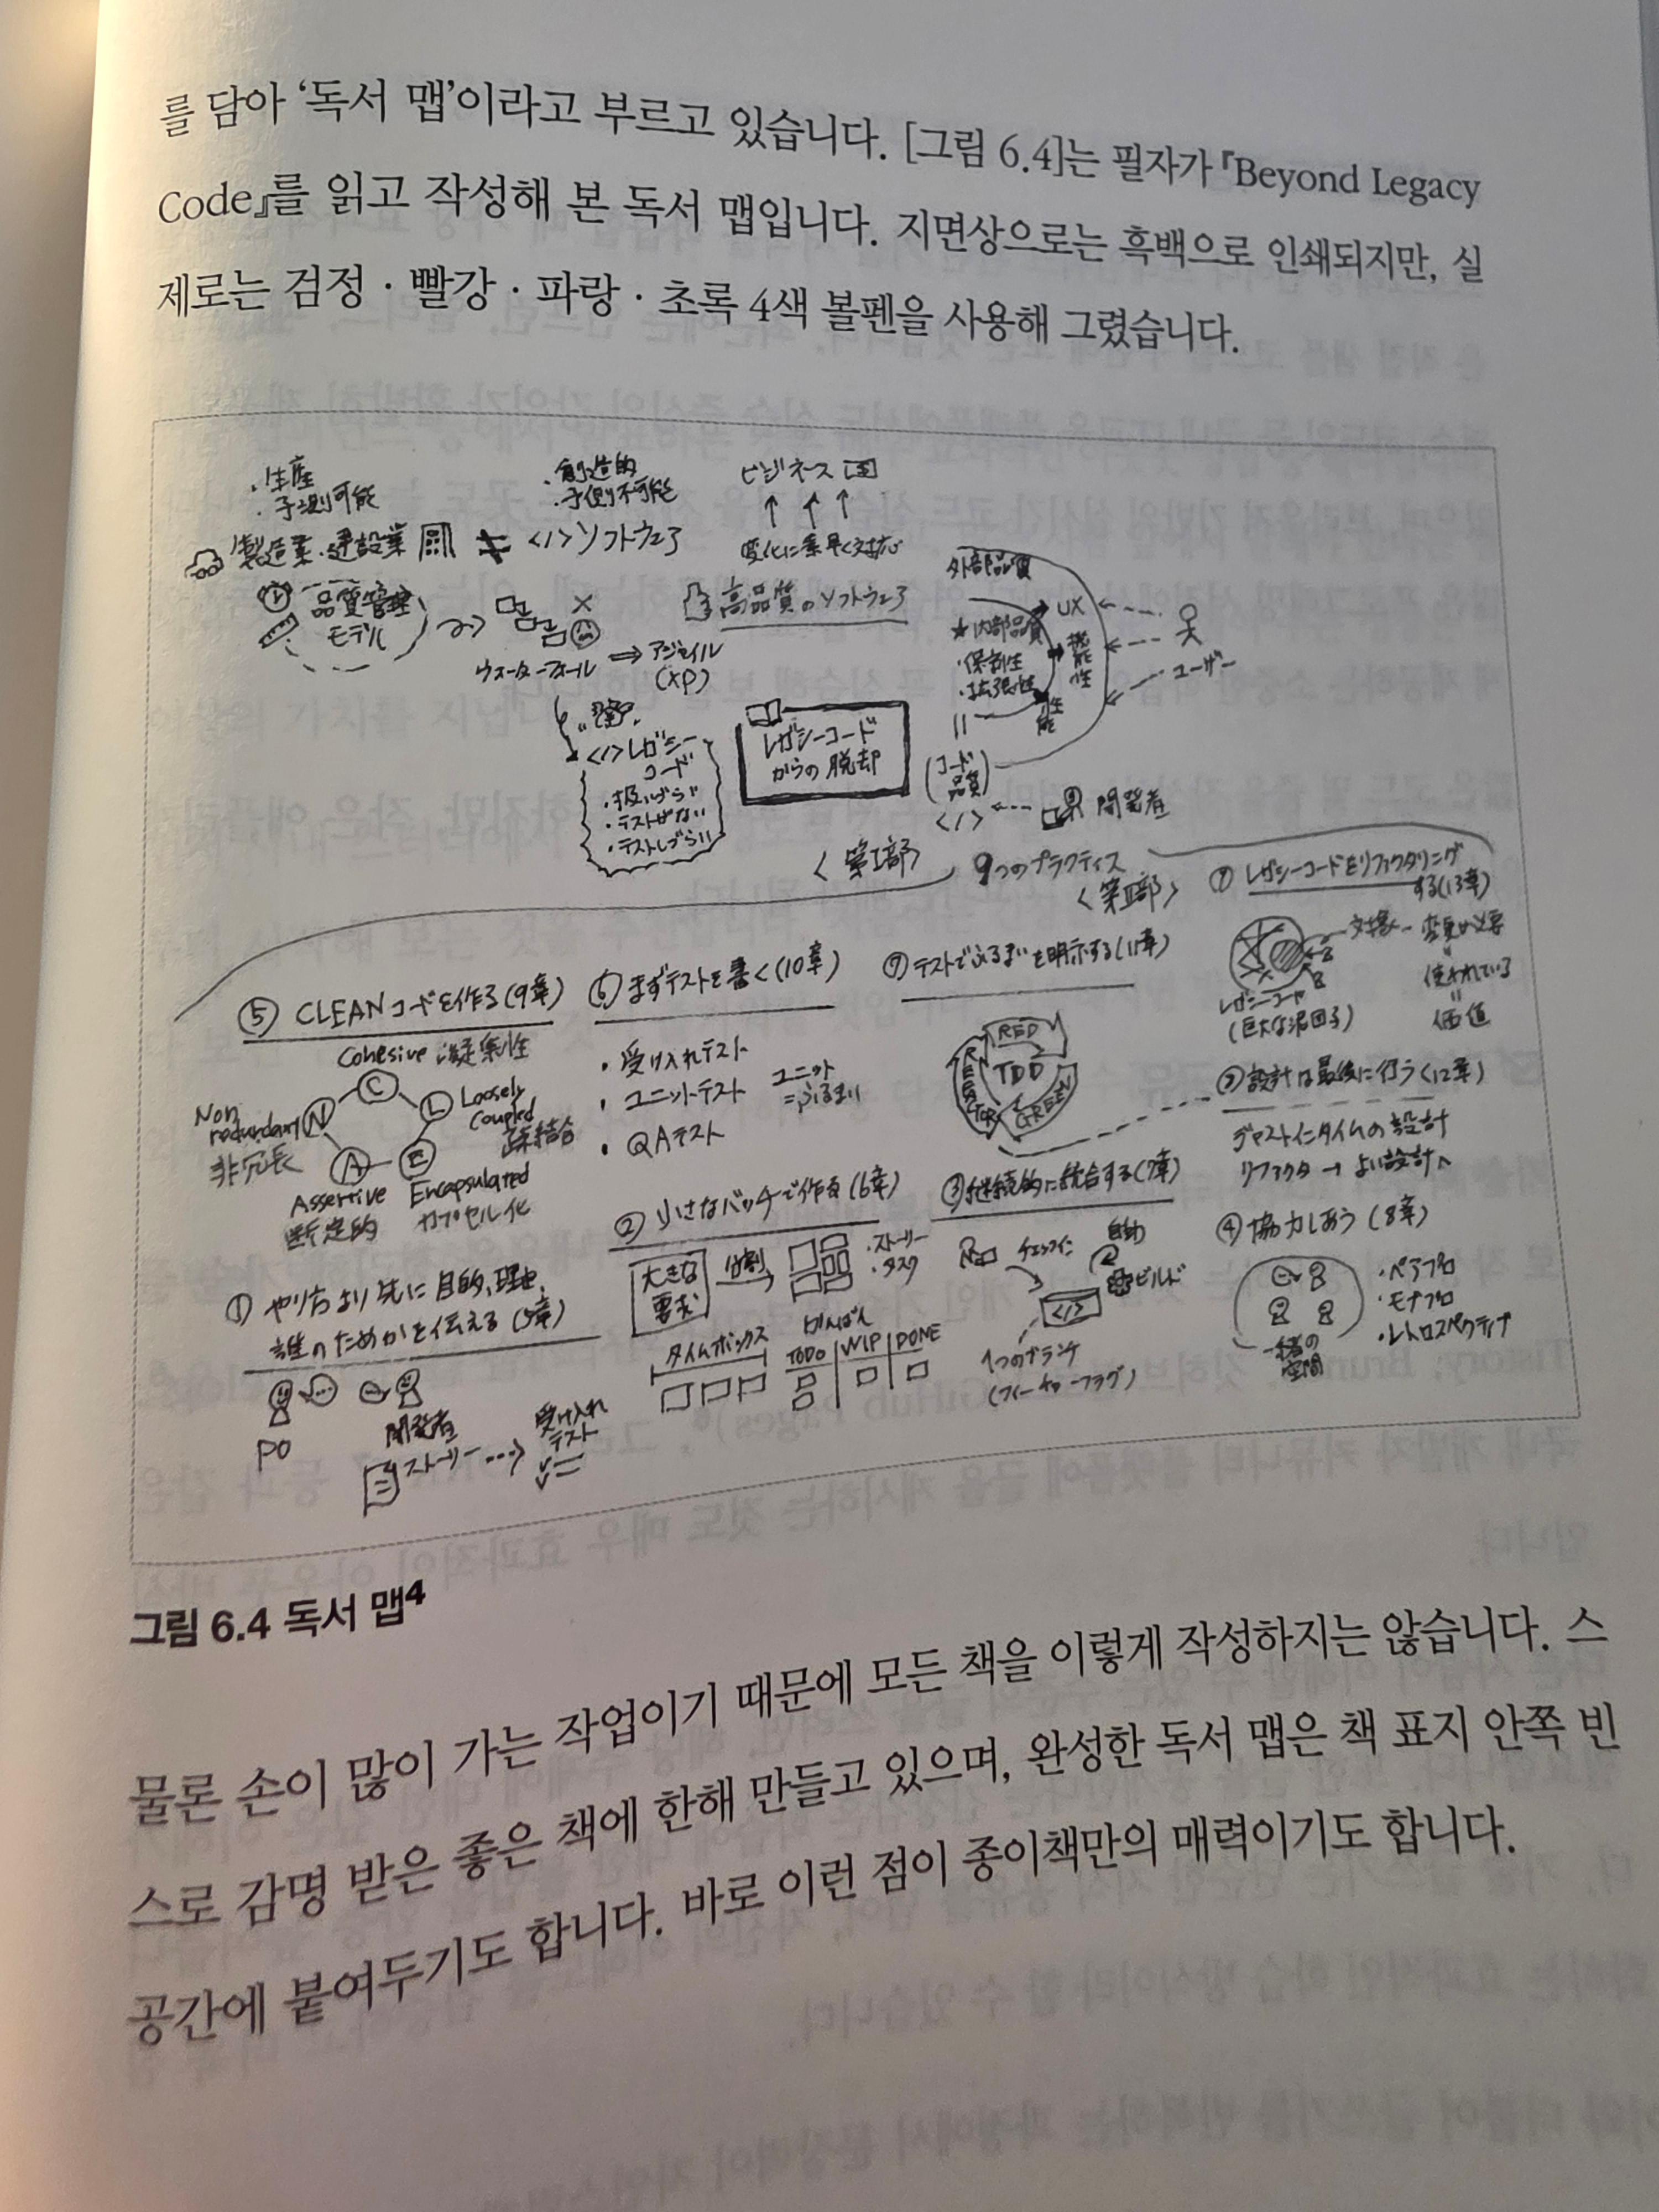 를 담아 ‘독서 맵’이라고 부르고 있습니다. [그림 6.4]는 필자가 『Beyond Legacy
Code』를 읽고 작성해 본 독서 맵입니다. 지면상으로는 흑백으로 인쇄되지만, 실
제로는 검정 · 빨강 · 파랑 · 초록 4색 볼펜을 사용해 그렸습니다.
・生産
・予測可能
製造業・建設業 ≠ </> ソフトウェア
・創造的
・予測不可能
品質管理
モデル
ウォーターフォール ⇒ アジャイル
(XP)
ビジネス
変化に素早く対応
高品質のソフトウェア
</> レガシー
コード
・扱いづらい
・テストがない
・テストしづらい
レガシーコード
からの脱却
外部品質
★内部品質
・保守性
・拡張性
UX
機能性
性能
ユーザー
(コード
品質)
</>
開発者
<第Ⅰ部>
9つのプラクティス
<第Ⅱ部>
⑤ CLEANコードを作る(9章)
Cohesive 凝集性
C
L
Loosely
Coupled
疎結合
Non
redundant
非冗長
N
A
E
Assertive
断定的
Encapsulated
カプセル化
⑥ まずテストを書く(10章)
・受け入れテスト
・ユニットテスト
・QAテスト
ユニット
=ふるまい
⑦ テストでふるまいを明示する(11章)
RED
TDD
GREEN
REFACTOR
レガシーコードをリファクタリング
する(13章)
対象 - 変更が必要
使われている
価値
レガシーコード
(巨大な泥団子)
設計は最後に行う(12章)
ジャストインタイムの設計
リファクタ → よい設計へ
① やり方より先に目的、理由、
誰のためかを伝える(5章)
PO
開発者
ストーリー
受け入れ
テスト
② 小さなバッチで作る(6章)
大きな
要求
分割
・ストーリー
・タスク
タイムボックス
かんばん
TODO WIP DONE
③ 継続的に統合する(7章)
チェックイン
自動
ビルド
</>
1つのブランチ
(フィーチャーフラグ)
④ 協力しあう(8章)
・ペアプロ
・モブプロ
・レトロスペクティブ
空間
그림 6.4 독서 맵4
물론 손이 많이 가는 작업이기 때문에 모든 책을 이렇게 작성하지는 않습니다. 스
스로 감명 받은 좋은 책에 한해 만들고 있으며, 완성한 독서 맵은 책 표지 안쪽 빈
공간에 붙여두기도 합니다. 바로 이런 점이 종이책만의 매력이기도 합니다.